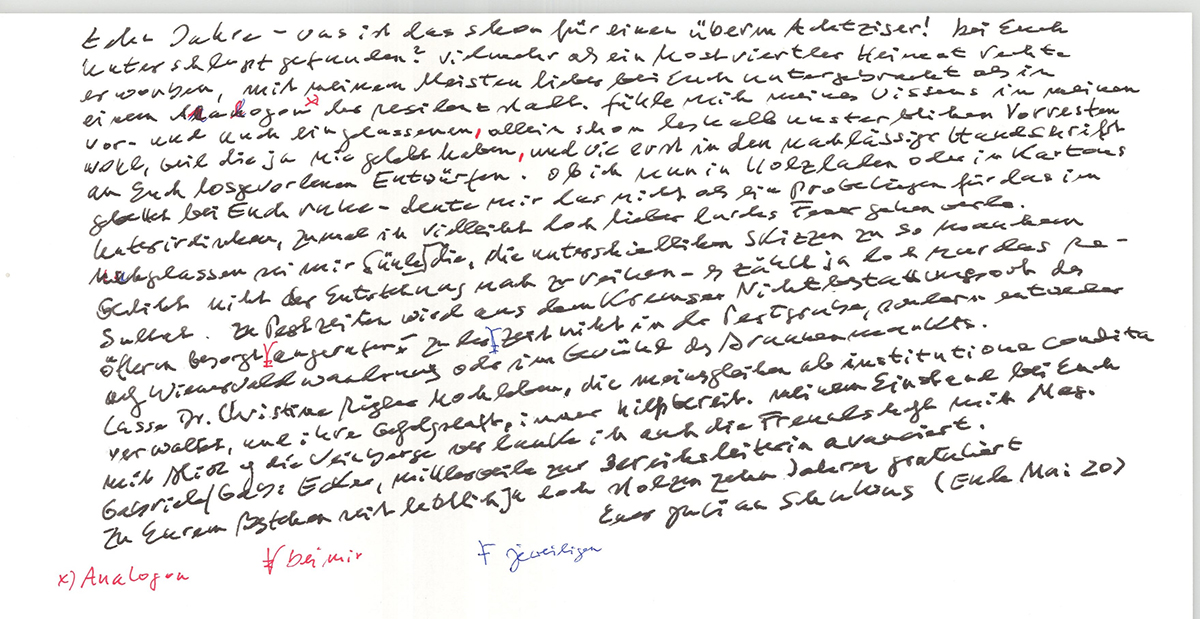 Zehn Jahre – was ist das schon für einen überm Achtziger! Bei Euch
Unterschlupf gefunden? Vielmehr als ein Mostviertler Heimatrechte
erworben, mit meinem Meisten lieber bei Euch untergebracht als in
einem Analogon x) der Residenzstadt. Fühle mich meines Wissens in meinen
Vor- und Nach eingelassenen, allein schon deshalb unsterblichen Vorresten
wohl, weil die ja nie gelebt haben, und wie erst in den nachlässiger Handschrift
an Euch losgewordenen Entwürfen. Ob ich nun in Holzladen oder in Kartons
bei Euch ruhe – deute mir das nicht als ein Probeliegen für das im
Unterirdischen, zumal ich vielleicht doch lieber durchs Feuer gehen werde.
Nachgelassen sei mir die, die unterschiedlichen Skizzen zu so manchem
Gedicht nicht der Entstehung nach zu reihen – es zählt ja doch nur das Re-
sultat. Zu Pestzeiten wird aus dem Kremser Nichtbestattungsort des
öftern besorgt angerufen: zu der Zeit nicht in der Pestgrube, sondern entweder
auf Wienerwaldwanderung oder im Gewühl des Brunnenmarkts.
Lasse Dr. Christine Rigler hochleben, die meinesgleichen ab institutione condita
verwaltet, und ihre Gefolgschaft, immer hilfsbereit. Meinem Einstand bei Euch
mit Blick auf die Weinberge verdanke ich auch die Freundschaft mit Mag.
Gabriele/Gabi Ecker, mittlerweile zur Bereichsleiterin avanciert.
Zu Eurem Bestehen seit letztlich ja doch stolzen zehn Jahren gratuliert
Euer Julian Schutting (Ende Mai 20)
x) Analogon
bei mir
jeweiligen